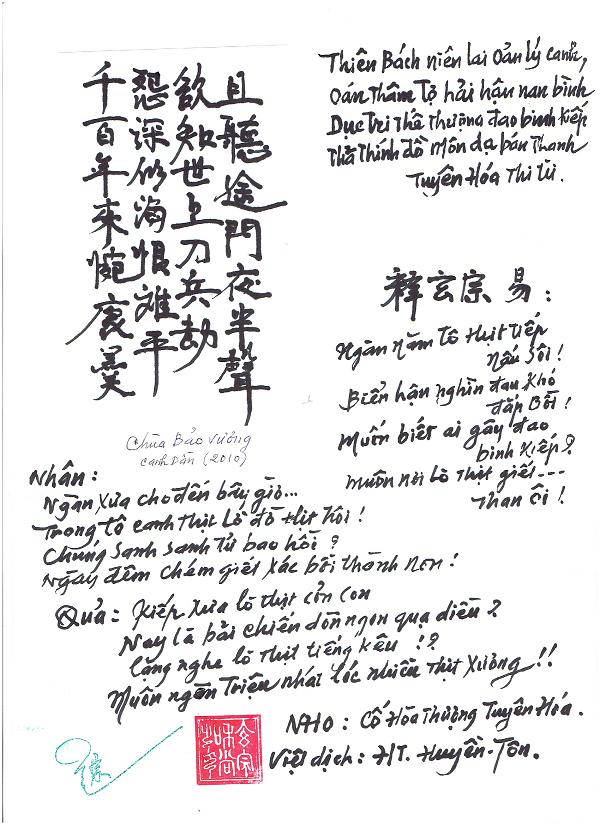 千百年來惋裏羹
怨深似海恨難平
欲知世上刀兵劫
且聽途門夜半聲
Chùa Bảo Vương
Canh Dần (2010)
Thiên Bách niên lai Oản lý canh,
Oán thâm tợ hải hận nan bình
Dục Tri Thế Thượng đao binh kiếp
Thả thính đồ môn dạ bán Thanh
Tuyên Hóa Thi Từ.
釋玄宗 易 :
Ngàn năm tô thịt tiếp
nấu sôi !
Biển hận nghìn đau khó
đắp Bồi !
Muốn biết ai gây đao
binh kiếp ?
muôn nơi lò Thịt giết ---
Than ôi !
Nhân :
Ngàn xưa cho đến bây giờ...
Trong tô canh Thịt Lò đồ thịt hôi !
Chúng sanh sanh tử bao hồi ?
Ngày đêm chém giết xác bồi thành non !
Quả : Kiếp xưa lò thịt cỏn con
Nay là bãi chiến dồn ngon qua diều ?
lặng nghe lò Thịt tiếng kêu !?
Muôn ngàn Triệu nhát lóc nhiều Thịt Xương !!
NHO : Cố Hòa Thượng Tuyên Hóa .
Việt dịch : HT. Huyền-Tôn.